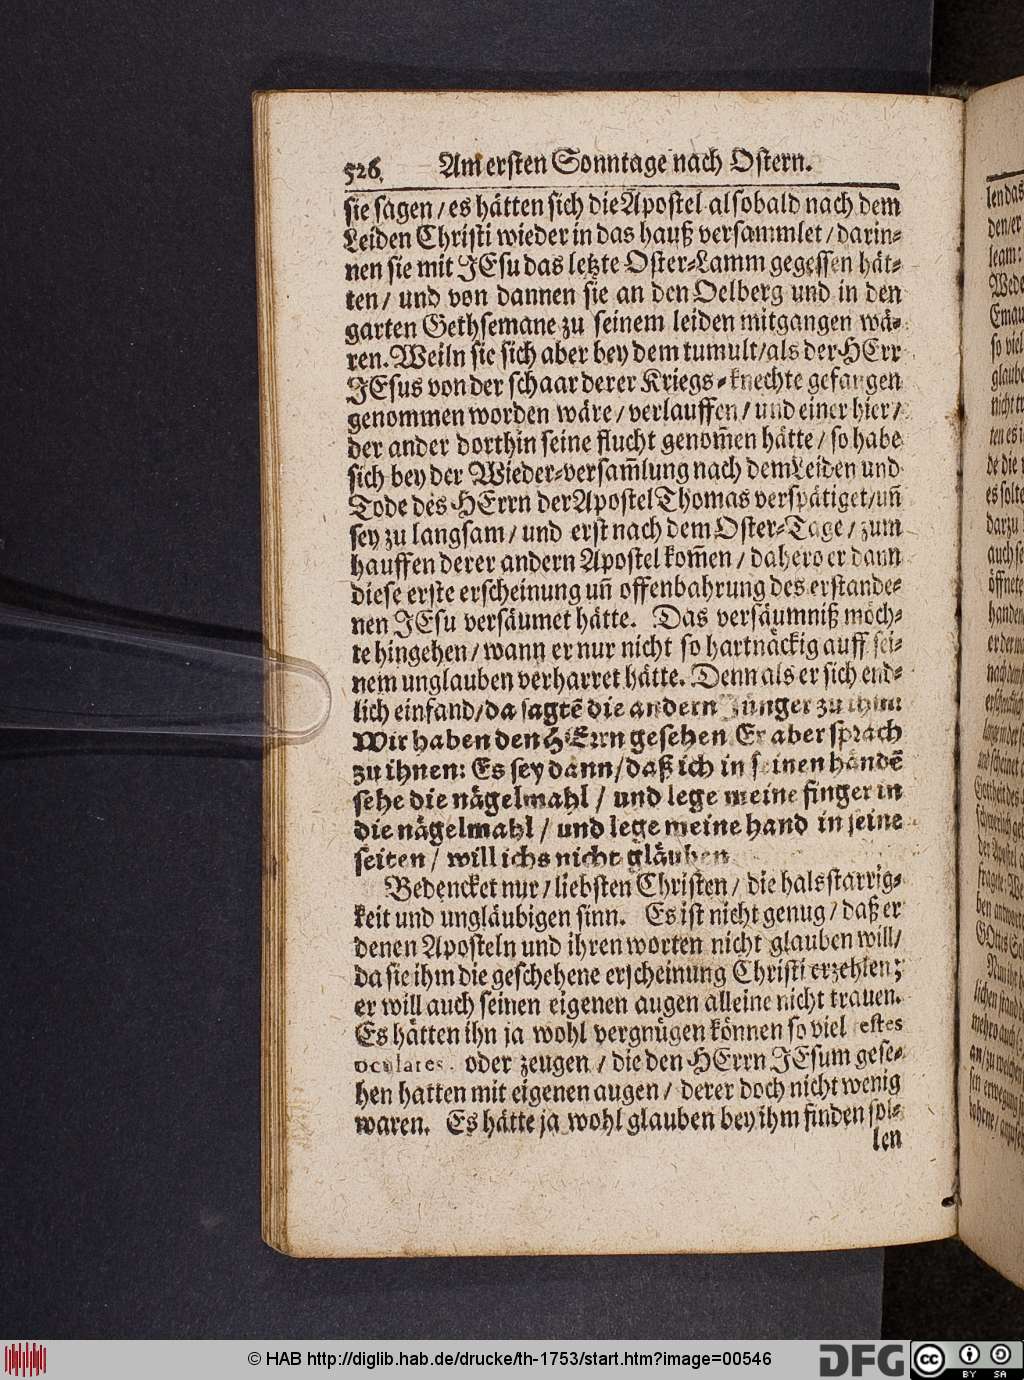 526. Am ersten Sonntage nach Ostern.
sie sagen / es hätten sich die Apostel alsobald nach dem
Leiden Christi wieder in das hauß versammlet / darin-
nen sie mit JEsu das letzte Oster-Lamm gegessen hät-
ten / und von dannen sie an den Oelberg und in den
garten Gethsemane zu seinem leiden mitgangen wä-
ren. Weiln sie sich aber bey dem tumult / als der HErr
JEsus von der schaar derer Kriegs-knechte gefangen
genommen worden wäre / verlauffen / und einer hier /
der ander dorthin seine flucht genom̃en hätte / so habe
sich bey der Wieder-versam̃lung nach dem Leiden und
Tode des HErrn der Apostel Thomas verspätiget / uñ
sey zu langsam / und erst nach dem Oster-Tage / zum
hauffen derer andern Apostel kom̃en / dahero er dann
diese erste erscheinung uñ offenbahrung des erstande-
nen JEsu versäumet hätte. Das versäumniß möch-
te hingehen / wann er nur nicht so hartnäckig auff sei-
nem unglauben verharret hätte. Denn als er sich end-
lich einfand / da sagtẽ die andern Jünger zu ihm:
Wir haben den HErrn gesehen Er aber sprach
zu ihnen: Es sey dann / daß ich in seinen händẽ
sehe die nägelmahl / und lege meine finger in
die nägelmahl / und lege meine hand in seine
seiten / will ichs nicht gläuben
Bedencket nur / liebsten Christen / die halsstarrig-
keit und ungläubigen sinn. Es ist nicht genug / daß er
denen Aposteln und ihren worten nicht glauben will /
da sie ihm die geschehene erscheinung Christi erzehlen;
er will auch seinen eigenen augen alleine nicht trauen.
Es hätten ihn ja wohl vergnügen können so viel testes
oculares. oder zeugen / die den HErrn JEsum gese-
hen hatten mit eigenen augen / derer doch nicht wenig
waren. Es hätte ja wohl glauben bey ihm finden sol-
len
© HAB http://diglib.hab.de/drucke/th-1753/start.htm?image=00546
DFG
cc
BY SA